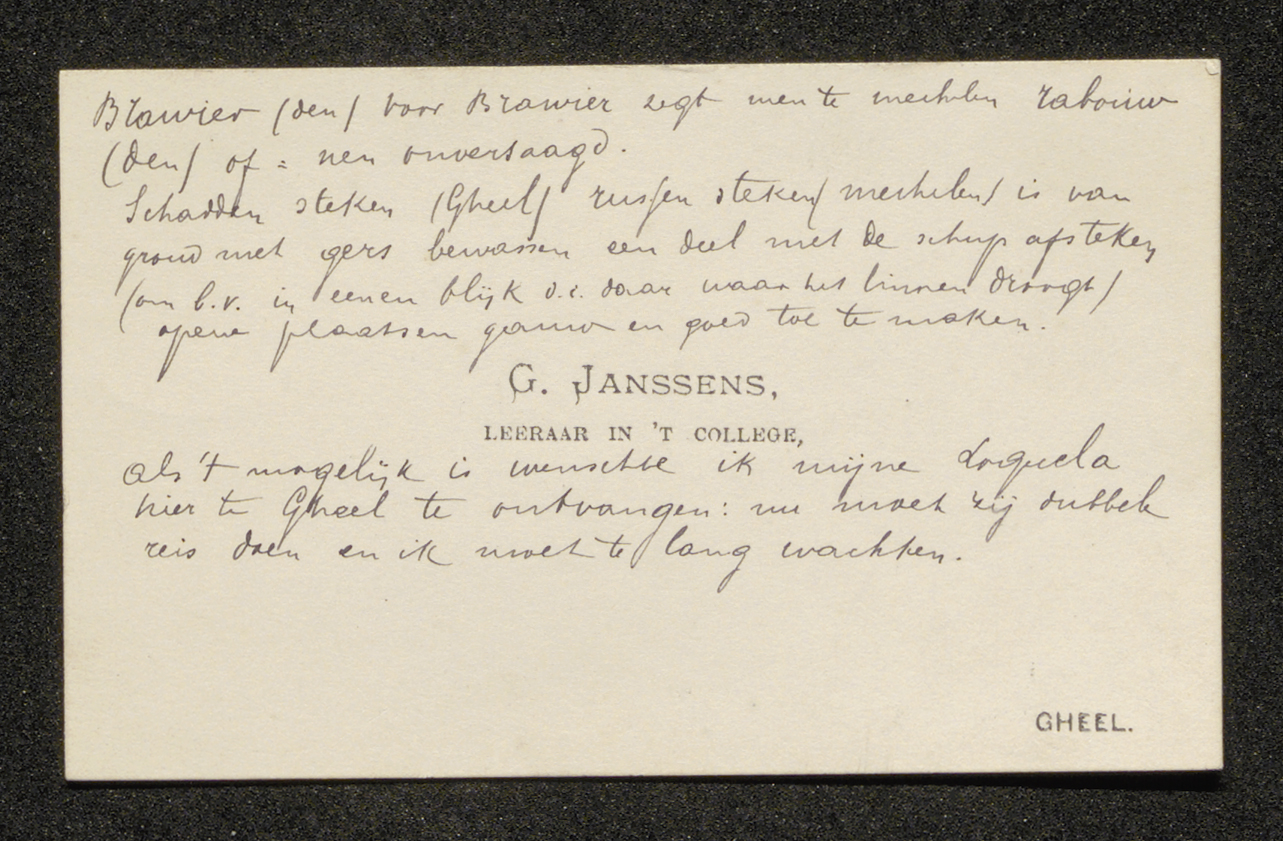 Brawier (den) voor Brawier zegt men te mechelen rabouw
(den) of = nen onversaagd.
Schadden steken (Gheel) russen steken (mechelen) is van
grond met gers bewassen een deel met de schup afsteken
(om b.v. in eenen blijk d.i. daar waar het linnen droogt)
opene plaatsen gauw en goed toe te maken.
G. JANSSENS,
LEERAAR IN 'T COLLEGE,
als 't mogelijk is wenschte ik mijne Loquela
hier te Gheel te ontvangen: nu moet zij dubbele
reis doen en ik moet te lang wachten.
GHEEL.